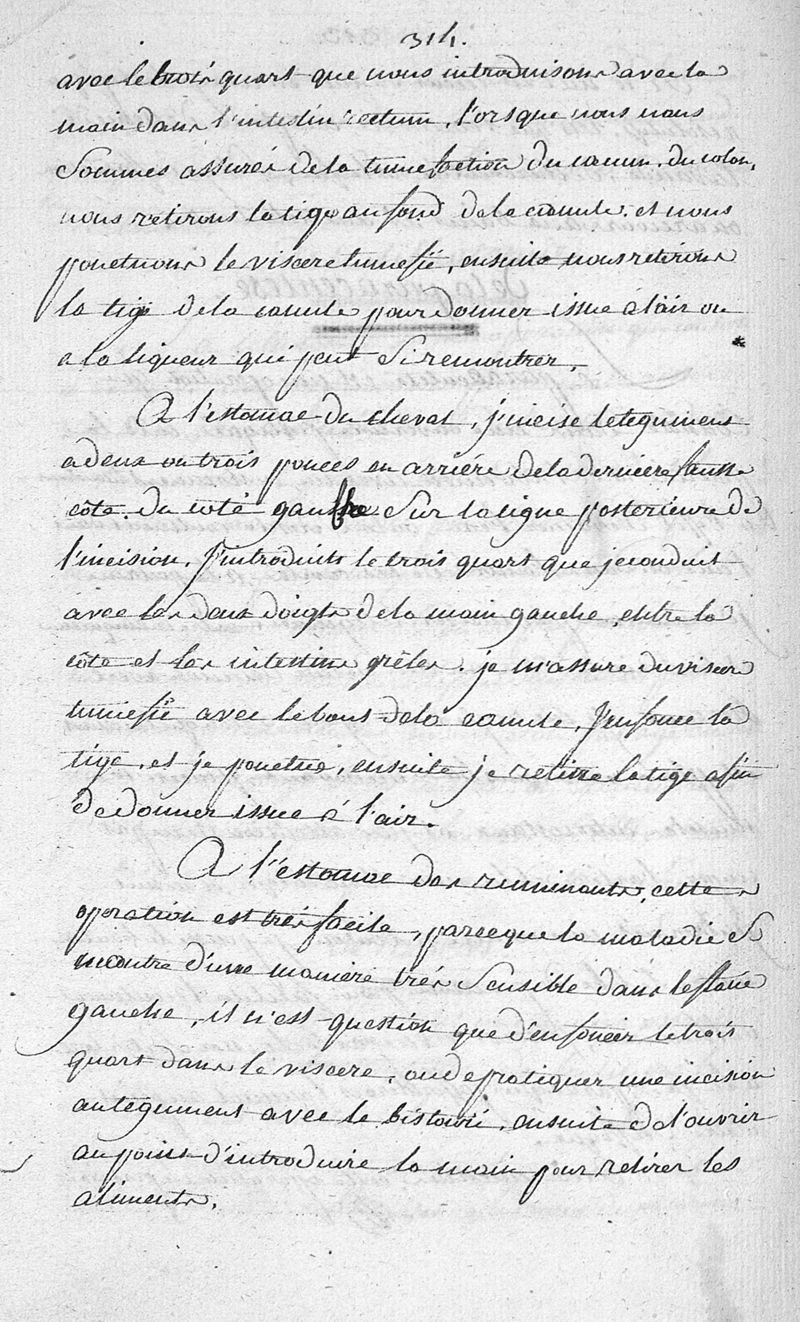 314.
avec le trois quart que nous introduisons avec la
main dans l'intestin rectum, lorsque nous nous
sommes assurés de la tumefaction du cœcum, du colon,
nous retirons la tige au fond de la canule. et nous
ponctuons le viscere tumefié, ensuite nous retirons
la tige de la canule pour donner issue à l'air ou
a la liqueur qui peut si remontrer.
A l'estomac du cheval, j'incise le tegument
a deux ou trois pouces en arriére de la derniére fausse
côte du coté gauche sur la ligne posterieure de
l'incision, j'introduits le trois quart que je conduit
avec les deux doigts de la main gauche, entre la
côte et les intestins grêles. je m'assure du viscere
tumefié avec le bout de la canule, j'enfonce la
tige, et je ponctue, ensuite je retire la tige afin
de donner issue à l'air.
A l'estomac des ruminants, cette
operation est très facile, parceque la maladie se
montre d'une maniére trés sensible dans le flanc
gauche, il n'est question que d'enfoncer le trois
quart dans le viscere, ou de pratiquer une incision
au tegument avec le bistouri, ensuite de l'ouvrir
au point d'introduire la main pour retirer les
aliments.